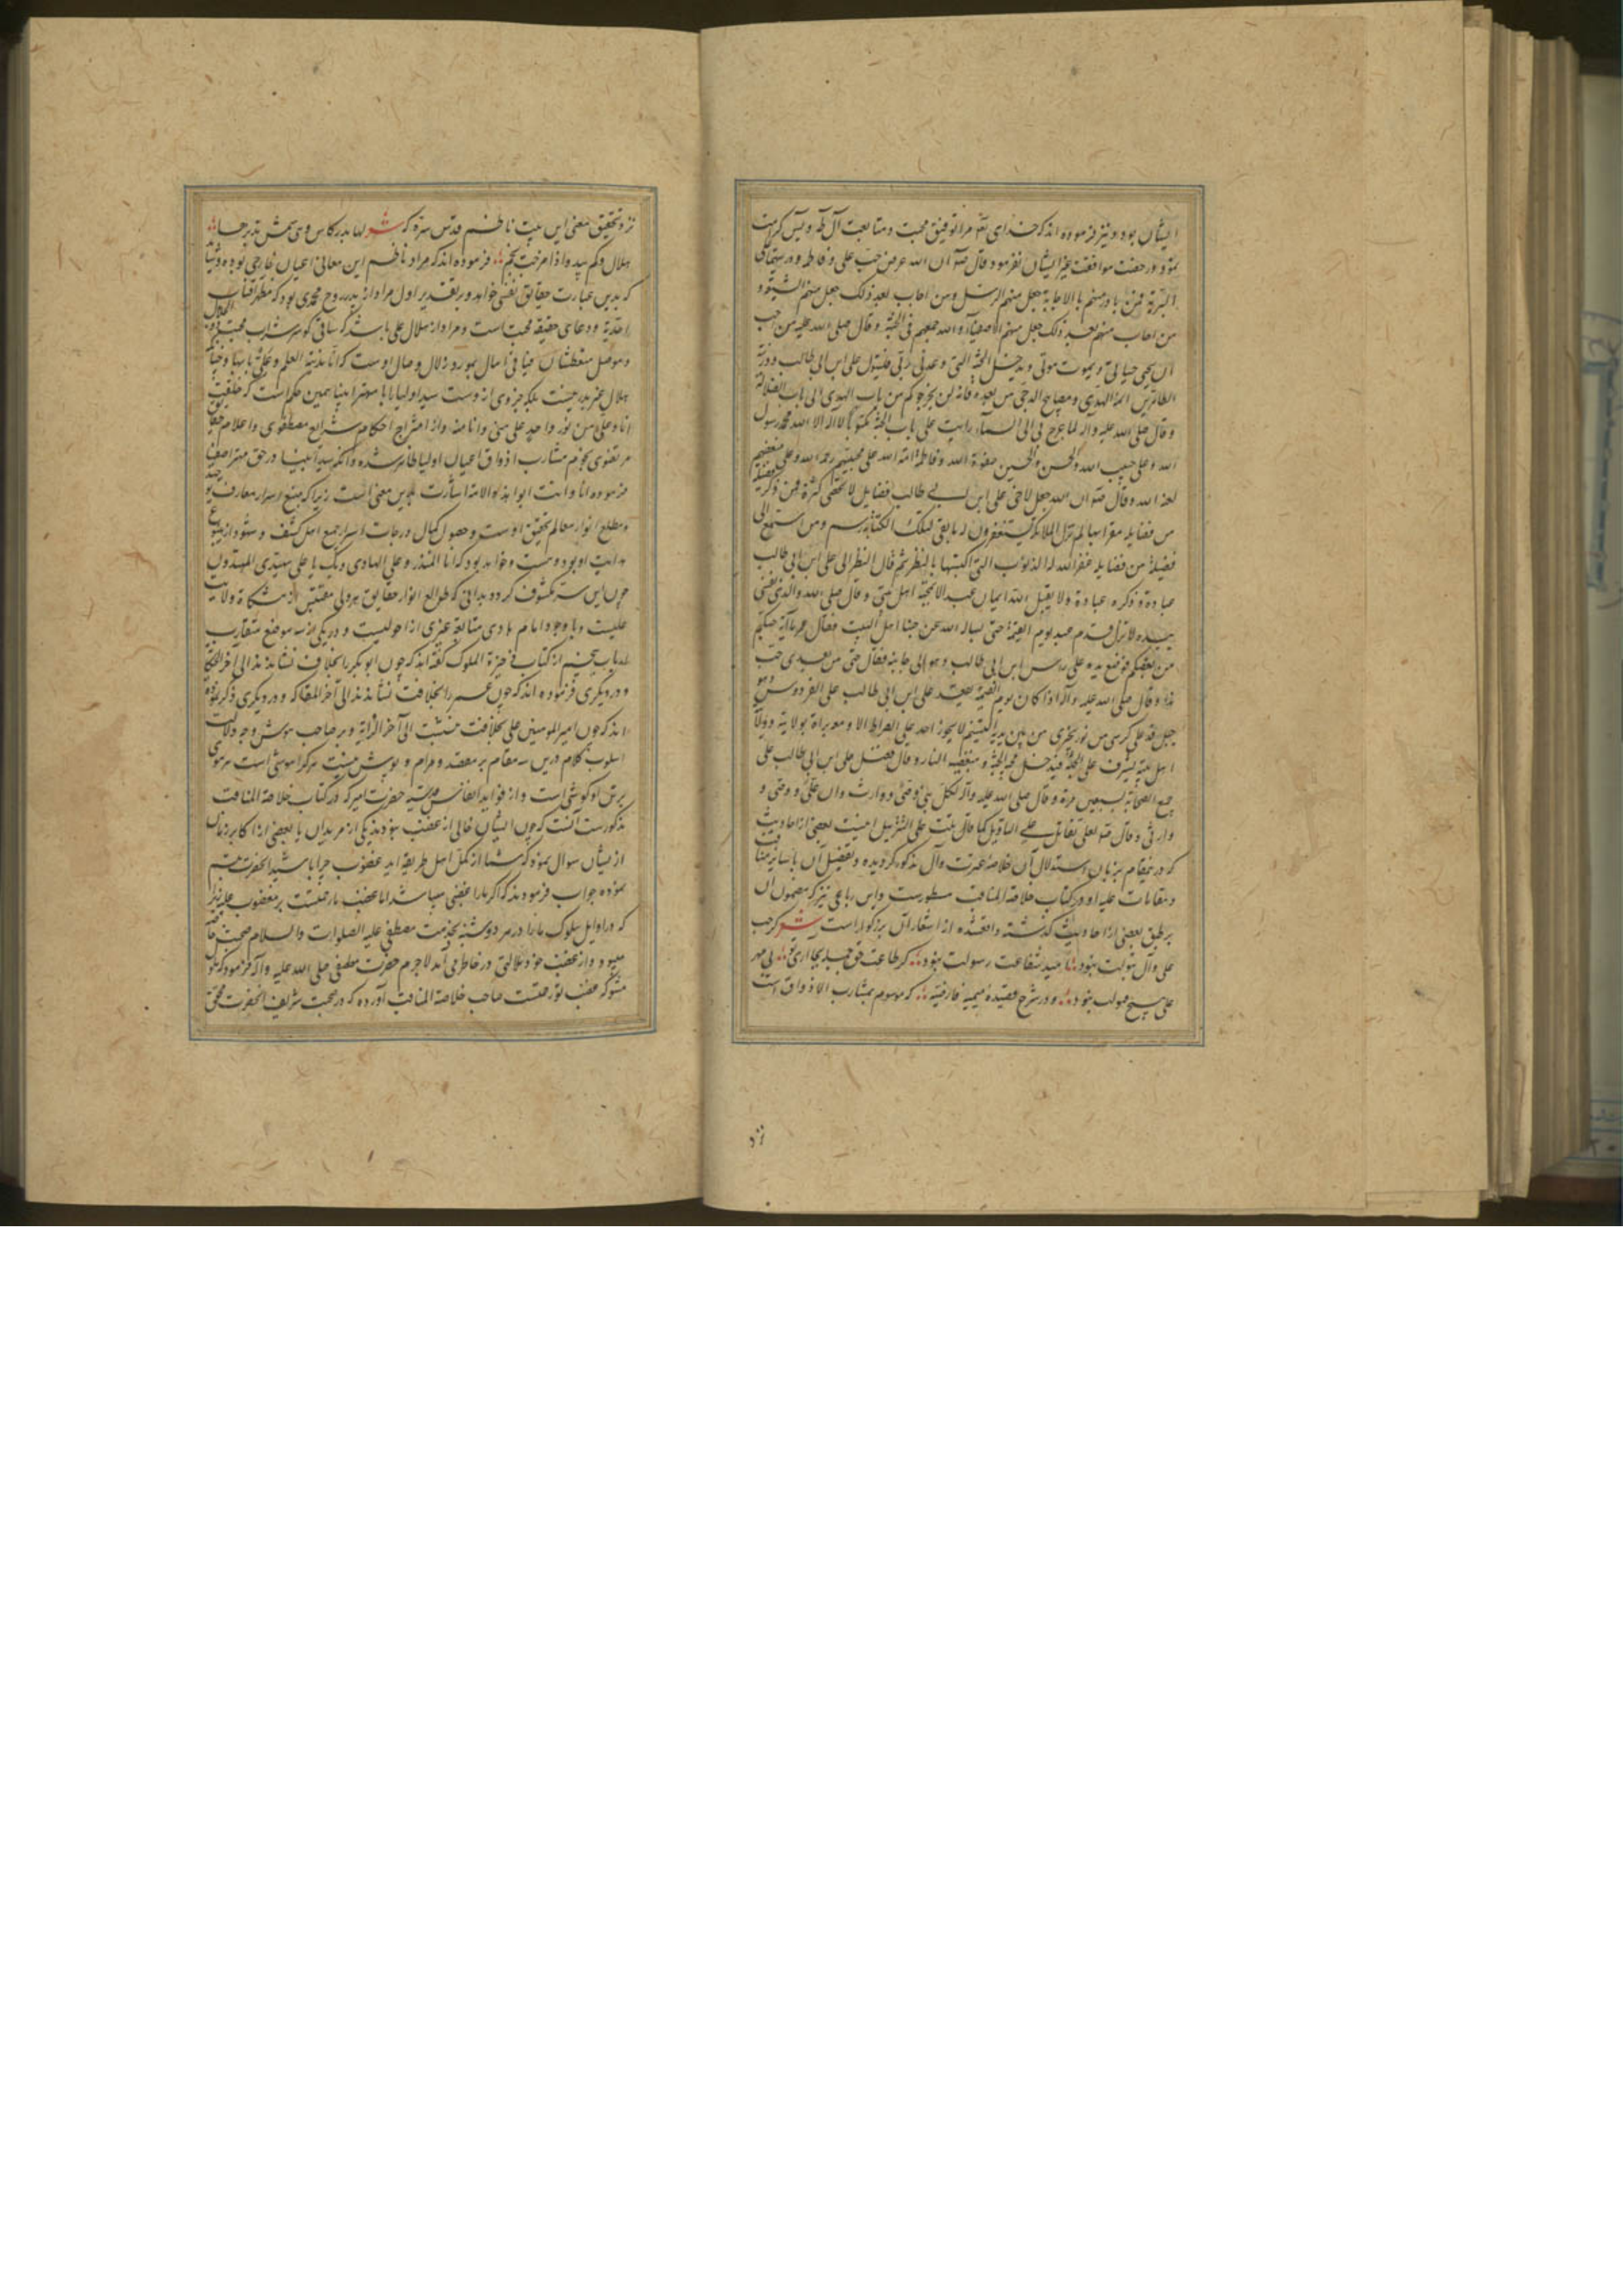 ایشان بود و نیز فرموده اند که خدای تعالی مرا توفیق محبت و متابعت آل طه و یس کرامت
نمود و رخصت موافقت غیر ایشان نفرمود و قال ان الله عرض حب علی و فاطمه و
البریة فمن بادر منهم بالاجابة جعل منهم الرسل و من اجاب بعد ذلک جعل منهم الشیعة و
من اجاب منهم بعد ذلک جعل منهم الاصفیاء و الله جمعهم فی الجنة و قال صلی الله علیه من احب
ان یحیی حیاتی و یموت موتی و یدخل الجنة التی وعدنی ربی فلیتول علی ابن ابی طالب و ذریته
الطاهرین ائمة الهدی و مصابیح الدجی من بعده فانه لن یخرجوکم من باب الهدی الی باب الضلالة
و قال صلی الله علیه و آله لما عرج بی الی السماء رایت علی باب الجنة مکتوبا لا اله الا الله محمد رسول
الله و علی حبیب الله و الحسن و الحسین صفوة الله و فاطمة امة الله علی محبیهم رحمة الله و علی مبغضیهم
لعنة الله و قال ان الله جعل لاخی علی ابن ابی طالب فضایل لا تحصی کثرة فمن ذکر فضیلة
من فضایله مقرا بها لم تزل الملائکة یستغفرون له ما بقی لتلک الکتابة رسم و من استمع الی
فضیلة من فضایله غفر الله له الذنوب التی اکتسبها بالنظر ثم قال النظر الی علی ابن ابی طالب
عبادة و ذکره عبادة و لا یقبل الله ایمان عبد الا بمحبة اهل بیتی و قال صلی الله والذی نفسی
بیده لا تزل قدم عبد یوم القیمة حتی یساله الله عن حبنا اهل البیت فقال عمر ما آیة حبکم
من بعدکم فوضع یده علی راس ابن ابی طالب و هو الی جانبه فقال حبی من بعدی حب
هذا و قال صلی الله علیه و آله اذا کان یوم القیمة یقعد علی ابن ابی طالب علی الفردوس و هو
جبل قد علی کرسی من نور یجری من بین یدیه التسنیم لا یجوز احد علی الصراط الا و معه براة بولایته و ولایة
اهل بیته یشرف علی الجنة فیدخل محبه الجنة و مبغضیه النار و قال فضل علی ابن ابی طالب علی
جمیع الصحابة بسبعین مرة و قال صلی الله علیه و آله لکل نبی وصی و وارث و ان علی وصیی و
وارثی و قال لعلی تقاتل علی التاویل کما قاتلت علی التنزیل اینست بعضی از احادیث
که در نمقام بر زبان استدلال آن خلاصه عترت و آل مذکور کردیده و تفصیل آن با سایر مناقب
و مقامات علیه او در کتاب خلاصة المناقب مسطورست و این رباعی نیز که مضمون آن
بر طبق بعضی از احادیث گذشته واقعشده از اشعار آن بزرگوار است شعر گر حب
علی و آل بتولت نبود امید شفاعت رسولت نبود گر طاعت حق جمله بجا آری تو بی مهر
علی هیچ قبولت نبود و در شرح قصیده میمیه فارضیه که موسوم بمشارب الاذواق است
نزد
نزد تحقیق معنی این بیت ناظم قدس سره که شعر لها البدر کاس و هی شمس یدیرها
هلال و کم یبدو اذا مزجت نجم فرموده اند که مراد ناظم این معانی اعیان خارجی بوده
که بدین عبارت حقایق نفسی خواهد و بر تقدیر اول مراد از بدر روح محمدی بود که مظهر آفتاب
احدیة و وعای حقیقه محبت است و مراد از هلال علی باشد که ساقی کوثر شراب محبت
و موصل متعطشان فیافی آمال بمورد زلال وصال اوست که انا مدینة العلم و علی بابها و چنانکه
هلال غیر بدر نیست بلکه جزوی از وست سید اولیا را با مهتر انبیا همین حکم است که خلقت
انا و علی من نور واحد علی منی و انا منه و از امتزاج احکام شرایع مصطفوی و اعلام حقایق
مرتضوی نجوم مشارب اذواق اعیان اولیا ظاهر شده و آنکه سید انبیا در حق مهتر اصفیا
فرموده انا و انت ابوا هذه الامة اشارت بدین معنی است زیرا که منبع اسرار معارف توحید
و مطلع انوار معالم تحقیق اوست و حصول کمال درجات اسرار جمیع اهل کشف و شهود از ینبوع
هدایت او بود و هست و خواهد بود که انا المنذر و علی الهادی و بک یا علی یهتدی المهتدون
چون این سر مکشوف گردد بدانی که طوالع انوار حقایق هر ولی مقتبس از مشکاة ولایت
علیست و با وجود امام هادی متابعت غیری از احولیست و در یکی از سه موضع متقارب
از باب پنجم از کتاب ذخیرة الملوک گفته اند که چون ابوبکر را بخلافت نشاندند الی آخر الحکایة
و در دیگری فرموده اند که چون عمر را بخلافت نشاندند الی آخر المقاله و در دیگری ذکر نموده
اند که چون امیر المومنین علی بخلافت بنشست الی آخر الرایة و بر صاحب هوش وجه دلالت
اسلوب کلام درین سه مقام بر مقصد و مرام پوش نیست هر که را هوشی است هر موی
برتن او گوشی است و از فواید انفاس قدسیه حضرت امیر که در کتاب خلاصة المناقب
مذکورست آنست که چون ایشان خالی از غضب نبودند یکی از مریدان یا بعضی از اکابر زمان
از یشان سوال نمود که شما از کمل اهل طریقه اید غضوب چرا باشید انحضرت تبسم
نموده جواب فرمودند که اگر ما را غضبی میباشد اما غضب ما رحمتست بر مغضوب علیه زیرا
که در اوایل سلوک ما را در هر دوشنبه بخدمت مصطفی علیه الصلوات و السلام صحبت خاصه
میبود و از غضب خود ملالتی در خاطر می آمد لاجرم حضرت مصطفی صلی الله علیه و آله فرمود که ملول
مشو که غضب تو رحمتست صاحب خلاصة المناقب آورده که در صحبت شریف انحضرت